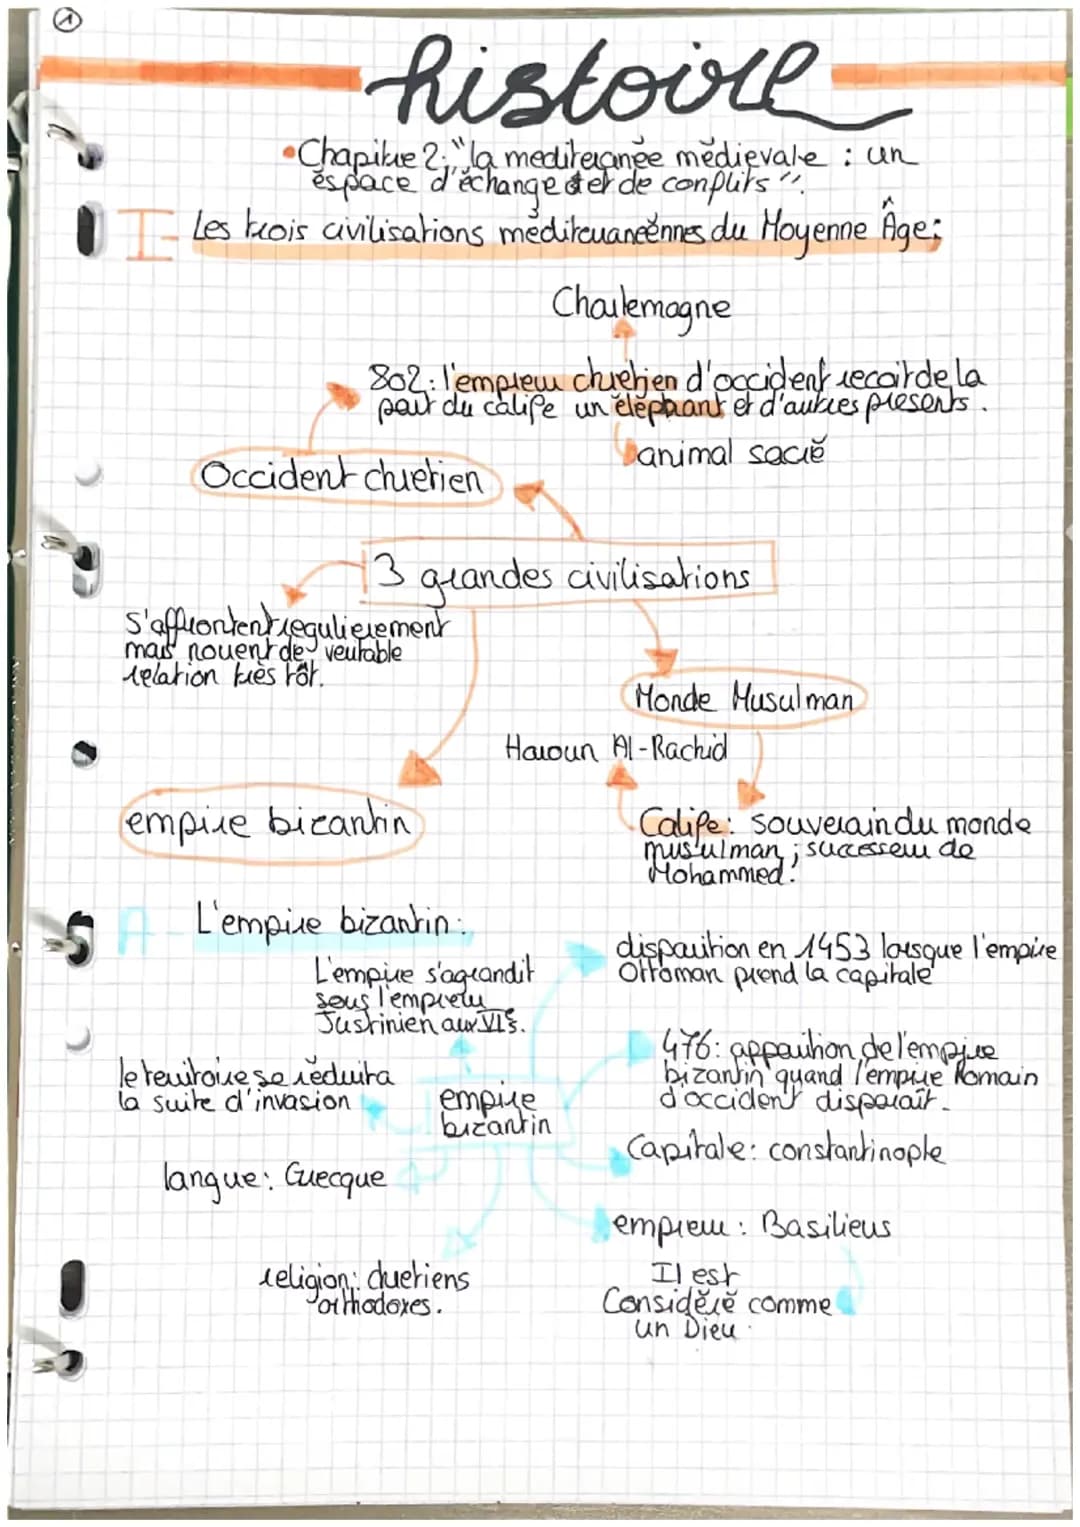 1
histoire
•Chapitre 2: "la mediteranée médievale : un
espace d'échange et de conflits".
I- Les trois civilisations méditerranéennes du Moyenne Âge:
Charlemagne
802: l'empreur chrétien d'occident recoit de la
part du calife un éléphant et d'autres présents.
animal sacré
Occident chretien
3 grandes civilisations
S'affrontent regulierement
mais nouent de veritable
relation très tôt.
Monde Musulman
Haroun Al-Rachid
empire bizantin
Calife: souverain du monde
musulman ; successeur de
Mohammed.
A- L'empire bizantin:
disparition en 1453 lorsque l'empire
Ottoman prend la capitale
L'empire s'agrandit
sous l'empreru
Justinien aux VIs.
476: apparition de l'empire
bizantin quand l'empire Romain
d'occident disparaît.
le territoire se réduira
la suite d'invasion
empire
bizantin
Capitale: constantinople
langue: Grecque
empreur: Basilieus
religion: chretiens
orthodoxes.
Il est
Considéré comme
un Dieu.